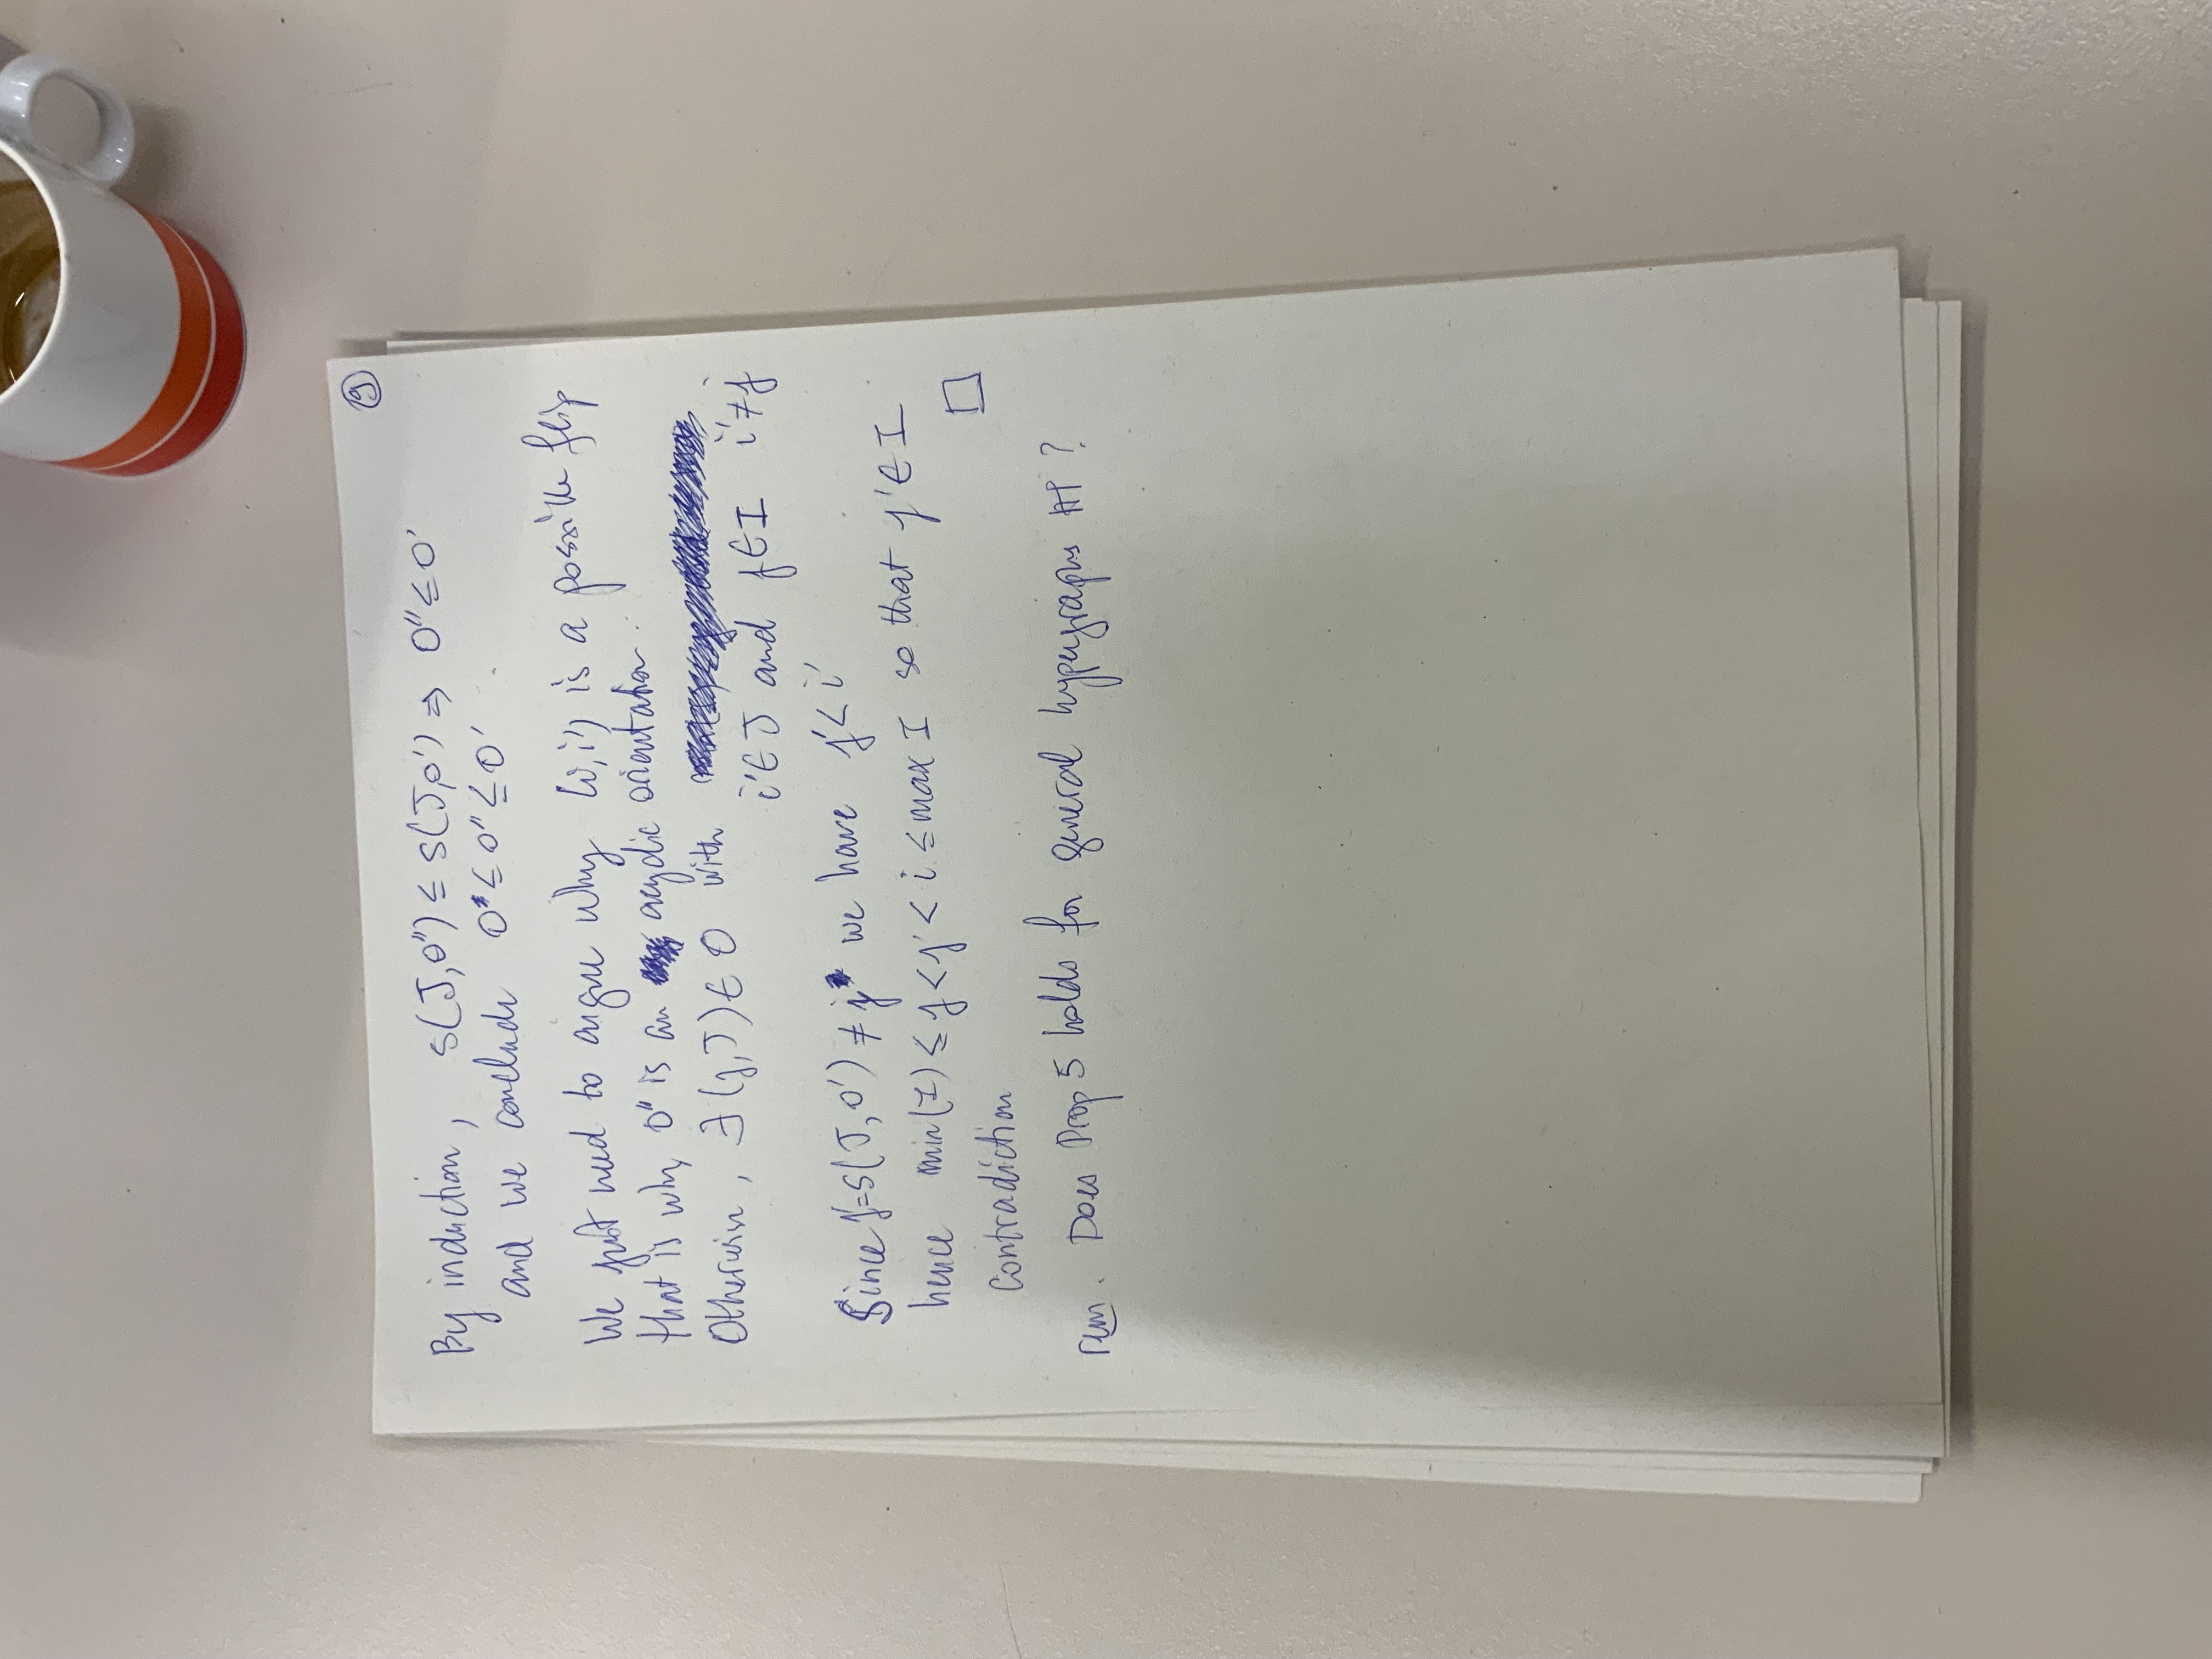 ⑨
By induction, s(J,O") ≤ s(J,O') ⇒ O" ≤ O'
and we conclude O ≤ O" ≤ O'.
We just need to argue why (i,i') is a possible flip
that is why O" is an acyclic orientation.
Otherwise, ∃ (j,J) ∈ O with
i' ∈ J and j ∈ I i' ≠ j
Since j' = s(J,O') ≠ j we have j' < i'
hence min(I) ≤ j < j' < i ≤ max I so that j' ∈ I
Contradiction □
Rm. Does Prop 5 holds for general hypergraphs ℍ?